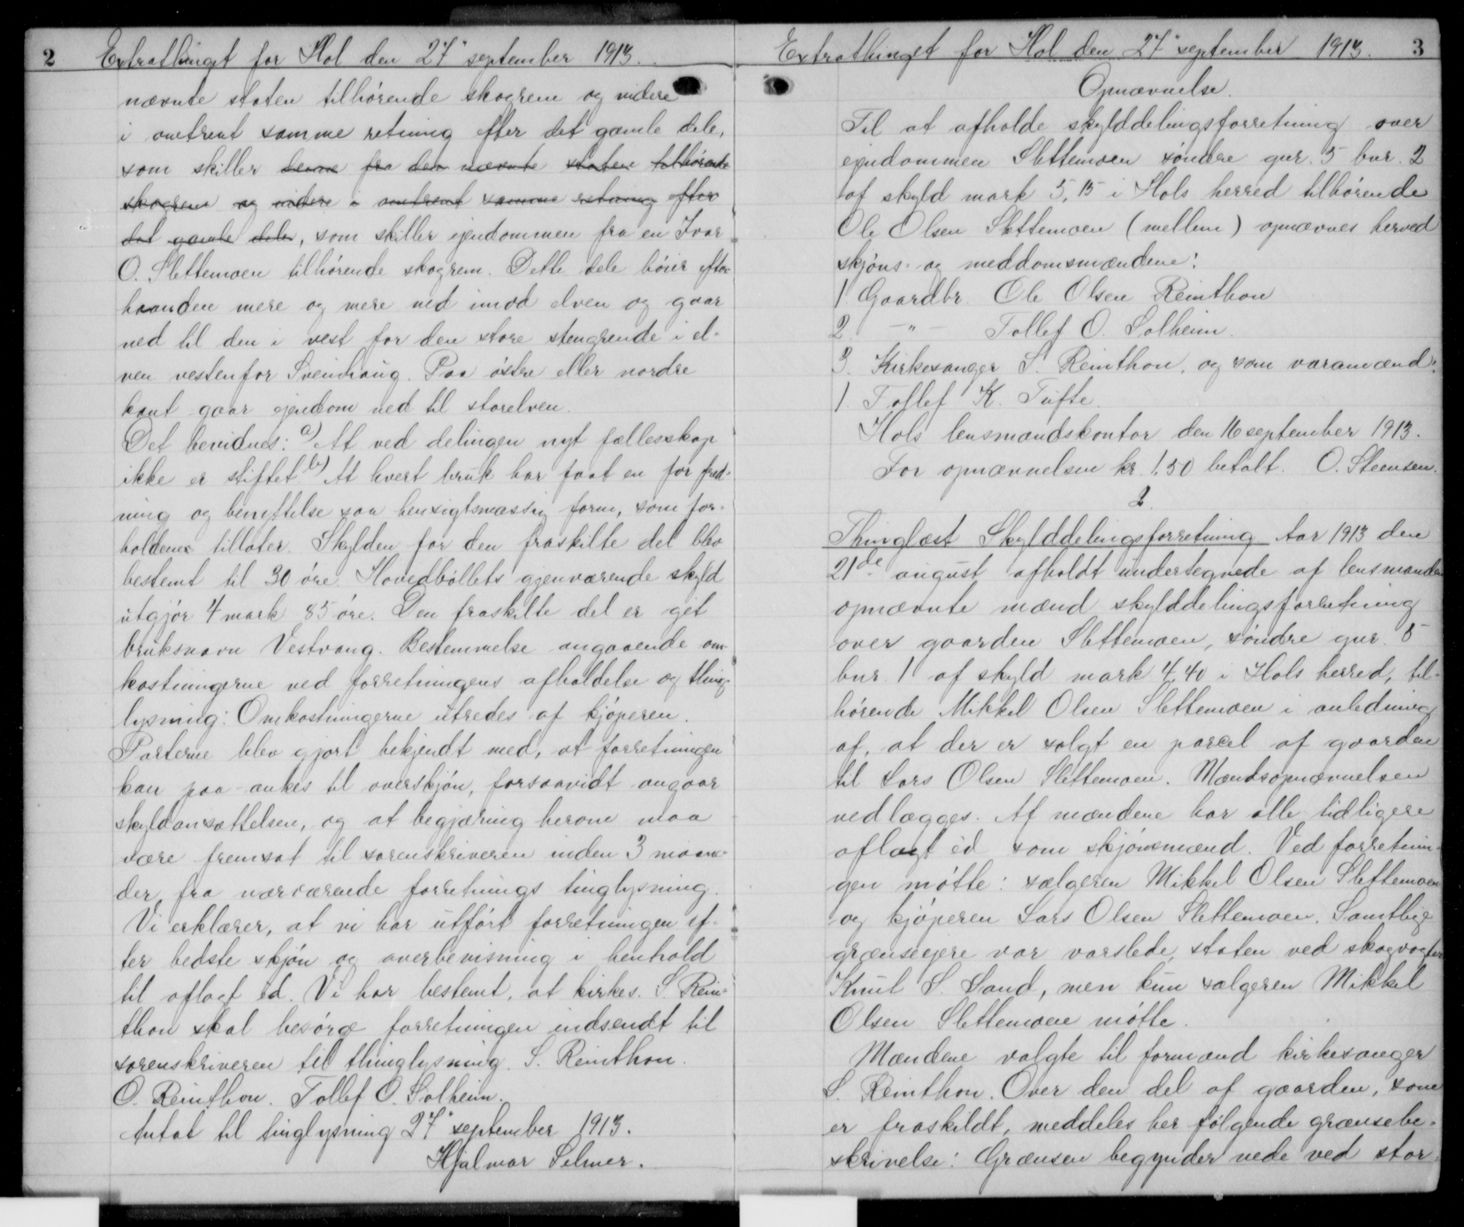 2 Extrathinget for Hol den 27' september 1913.
nævnte staten tilhørende skogrem og videre
i omtrent samme retning efter det gamle dele,
som skiller denne fra den nævnte staten tilhørende
skogrem og videre i omtrent samme retning efter
det gamle dele, som skiller ejendommen fra en Ivar
O. Slettemoen tilhørende skogrem. Dette dele bøier efter-
haanden mere og mere ned imod elven og gaar
ned til den i vest for den store stengrende i el-
ven vestenfor Sveinhaug. Paa østre eller nordre
kant gaar ejendom ned til storelven.
Det bevidnes: a) At ved delingen nyt fællesskap
ikke er stiftet b) At hvert bruk har faat en for fred-
ning og benyttelse saa hensigtsmæssig form, som for-
holdene tillater. Skylden for den fraskilte del blev
bestemt til 30 øre. Hovedbøllets gjenværende skyld
utgjør 4 mark 85 øre. Den fraskilte del er git
bruksnavn Vestvang. Bestemmelse angaaende om-
kostningerne ved forretningens afholdelse og thing-
lysning: Omkostningerne utredes af kjøperen.
Parterne blev gjort bekjendt med, at forretningen
kan paa-ankes til overskjøn, forsaavidt angaar
skyldansættelsen, og at begjæring herom maa
være fremsat til sorenskriveren inden 3 maane-
der fra nærværende forretnings tinglysning.
Vi erklærer, at vi har utført forretningen ef-
ter bedste skjøn og overbevisning i henhold
til aflagt ed. Vi har bestemt, at kirkes. S. Rein-
thon skal besørge forretningen indsendt til
sorenskriveren til thinglysning. S. Reinthon.
O. Reinthon. Tollef O. Solheim.
Antat til tinglysning 27' september 1913.
Hjalmar Selmer.
Extrathinget for Hol den 27' september 1913. 3
Opnævnelse.
Til at afholde skylddelingsforretning over
ejendommen Slettemoen søndre gnr. 5 bnr. 2
af skyld mark 5,15 i Hols herred tilhørende
Ole Olsen Slettemoen (mellem) opnævnes herved
skjøns- og meddomsmændene:
1 Gaardbr. Ole Olsen Reinthon
2 —"— Tollef O. Solheim.
3. Kirkesanger S. Reinthon, og som varamænd:
1. Tollef K. Tufte.
Hols lensmandskontor den 16 september 1913.
For opnævnelsen kr. 1.50 betalt. O. Steensen.
2.
Thinglæst Skylddelingsforretning Aar 1913 den
21de august afholdt undertegnede af lensmanden
opnævnte mænd skylddelingsforretning
over gaarden Slettemoen, søndre gnr. 5
bnr. 1 af skyld mark 4,40 i Hols herred, til-
hørende Mikkel Olsen Slettemoen i anledning
af, at der er solgt en parcel af gaarden
til Lars Olsen Slettemoen. Mandsopnævnelsen
vedlægges. Af mændene har alle tidligere
aflagt ed som skjønsmænd. Ved forretnin-
gen møtte: sælgeren Mikkel Olsen Slettemoen
og kjøperen Lars Olsen Slettemoen. Samtlige
grænseejere var varslede, staten ved skogvogter
Knut L. Sand, men kun sælgeren Mikkel
Olsen Slettemoen møtte.
Mændene valgte til formand kirkesanger
S. Reinthon. Over den del af gaarden, som
er fraskildt, meddeles her følgende grænsebe-
skrivelse: Grænsen begynder nede ved stor-